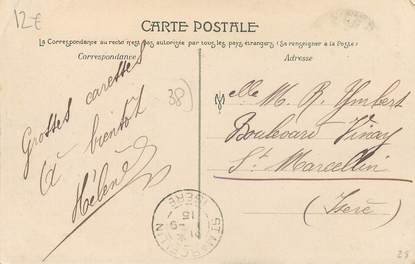 12€
CARTE POSTALE
La Correspondance au recto n'est pas autorisée par tous les pays étrangers (Se renseigner à la Poste)
Correspondance
Adresse
38
Grosses caresses
À bientôt
Hélène
Melle M. R. Ymbert
Boulevard Vinay
St Marcellin
(Isère)
ST MARCELLIN
ISERE
38